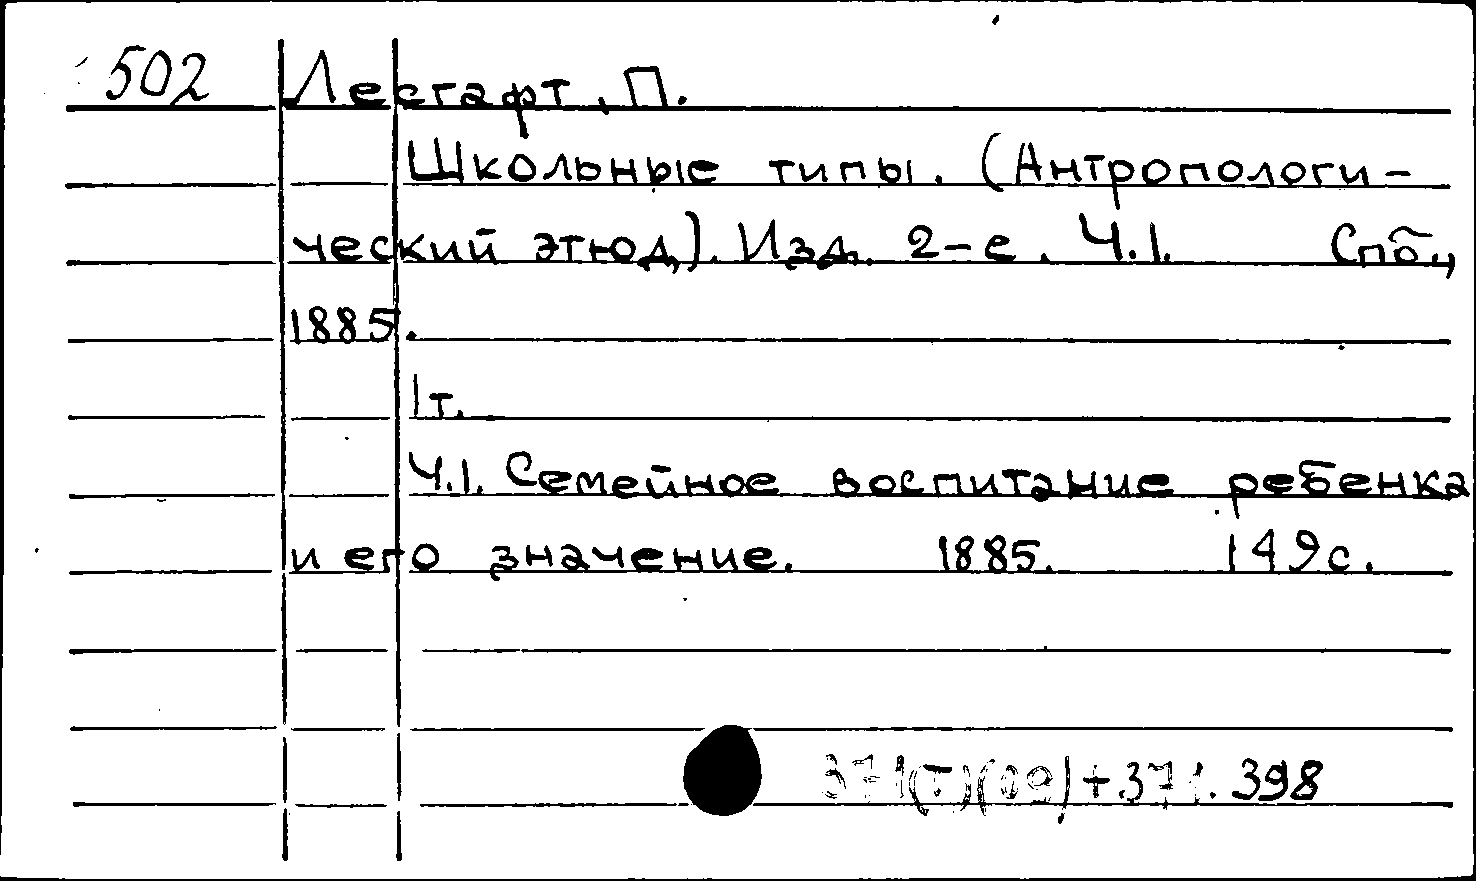 502 Лесгафт, П.
Школьные типы. (Антропологи-
ческий этюд). Изд. 2-е. Ч.1. Спб.,
1885.
1т.
Ч.1. Семейное воспитание ребенка
и его значение. 1885. 149с.
371(Т)(09)+371.398